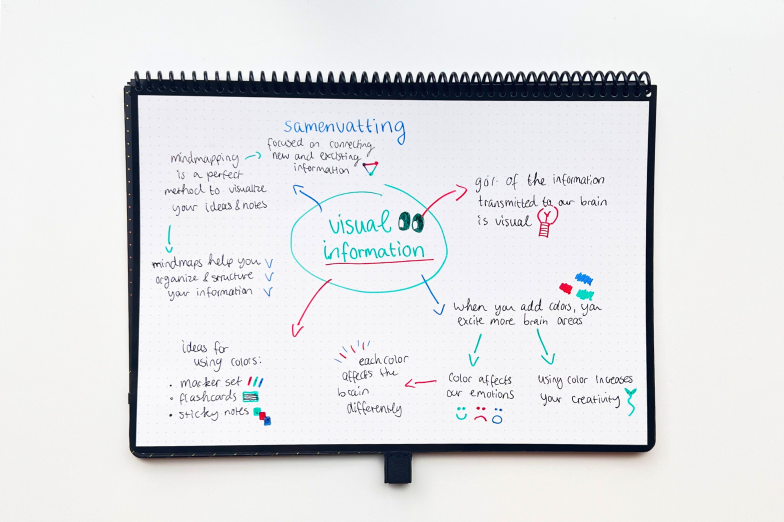 samenvatting
focused on connecting
new and existing
information
mindmapping
is a perfect
method to visualize
your ideas & notes
mindmaps help you
organize & structure
your information
visual
information
90% of the information
transmitted to our brain
is visual
When you add colors, you
excite more brain areas
Color affects
our emotions
using color increases
your creativity
each color
affects the
brain
differently
ideas for
using colors:
• marker set
• flashcards
• sticky notes